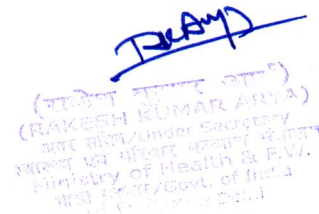 (राकेश कुमार आर्य)
(RAKESH KUMAR ARYA)
अवर सचिव/Under Secretary
स्वास्थ्य एवं परिवार कल्याण मंत्रालय
Ministry of Health & F.W.
भारत सरकार/Govt. of India